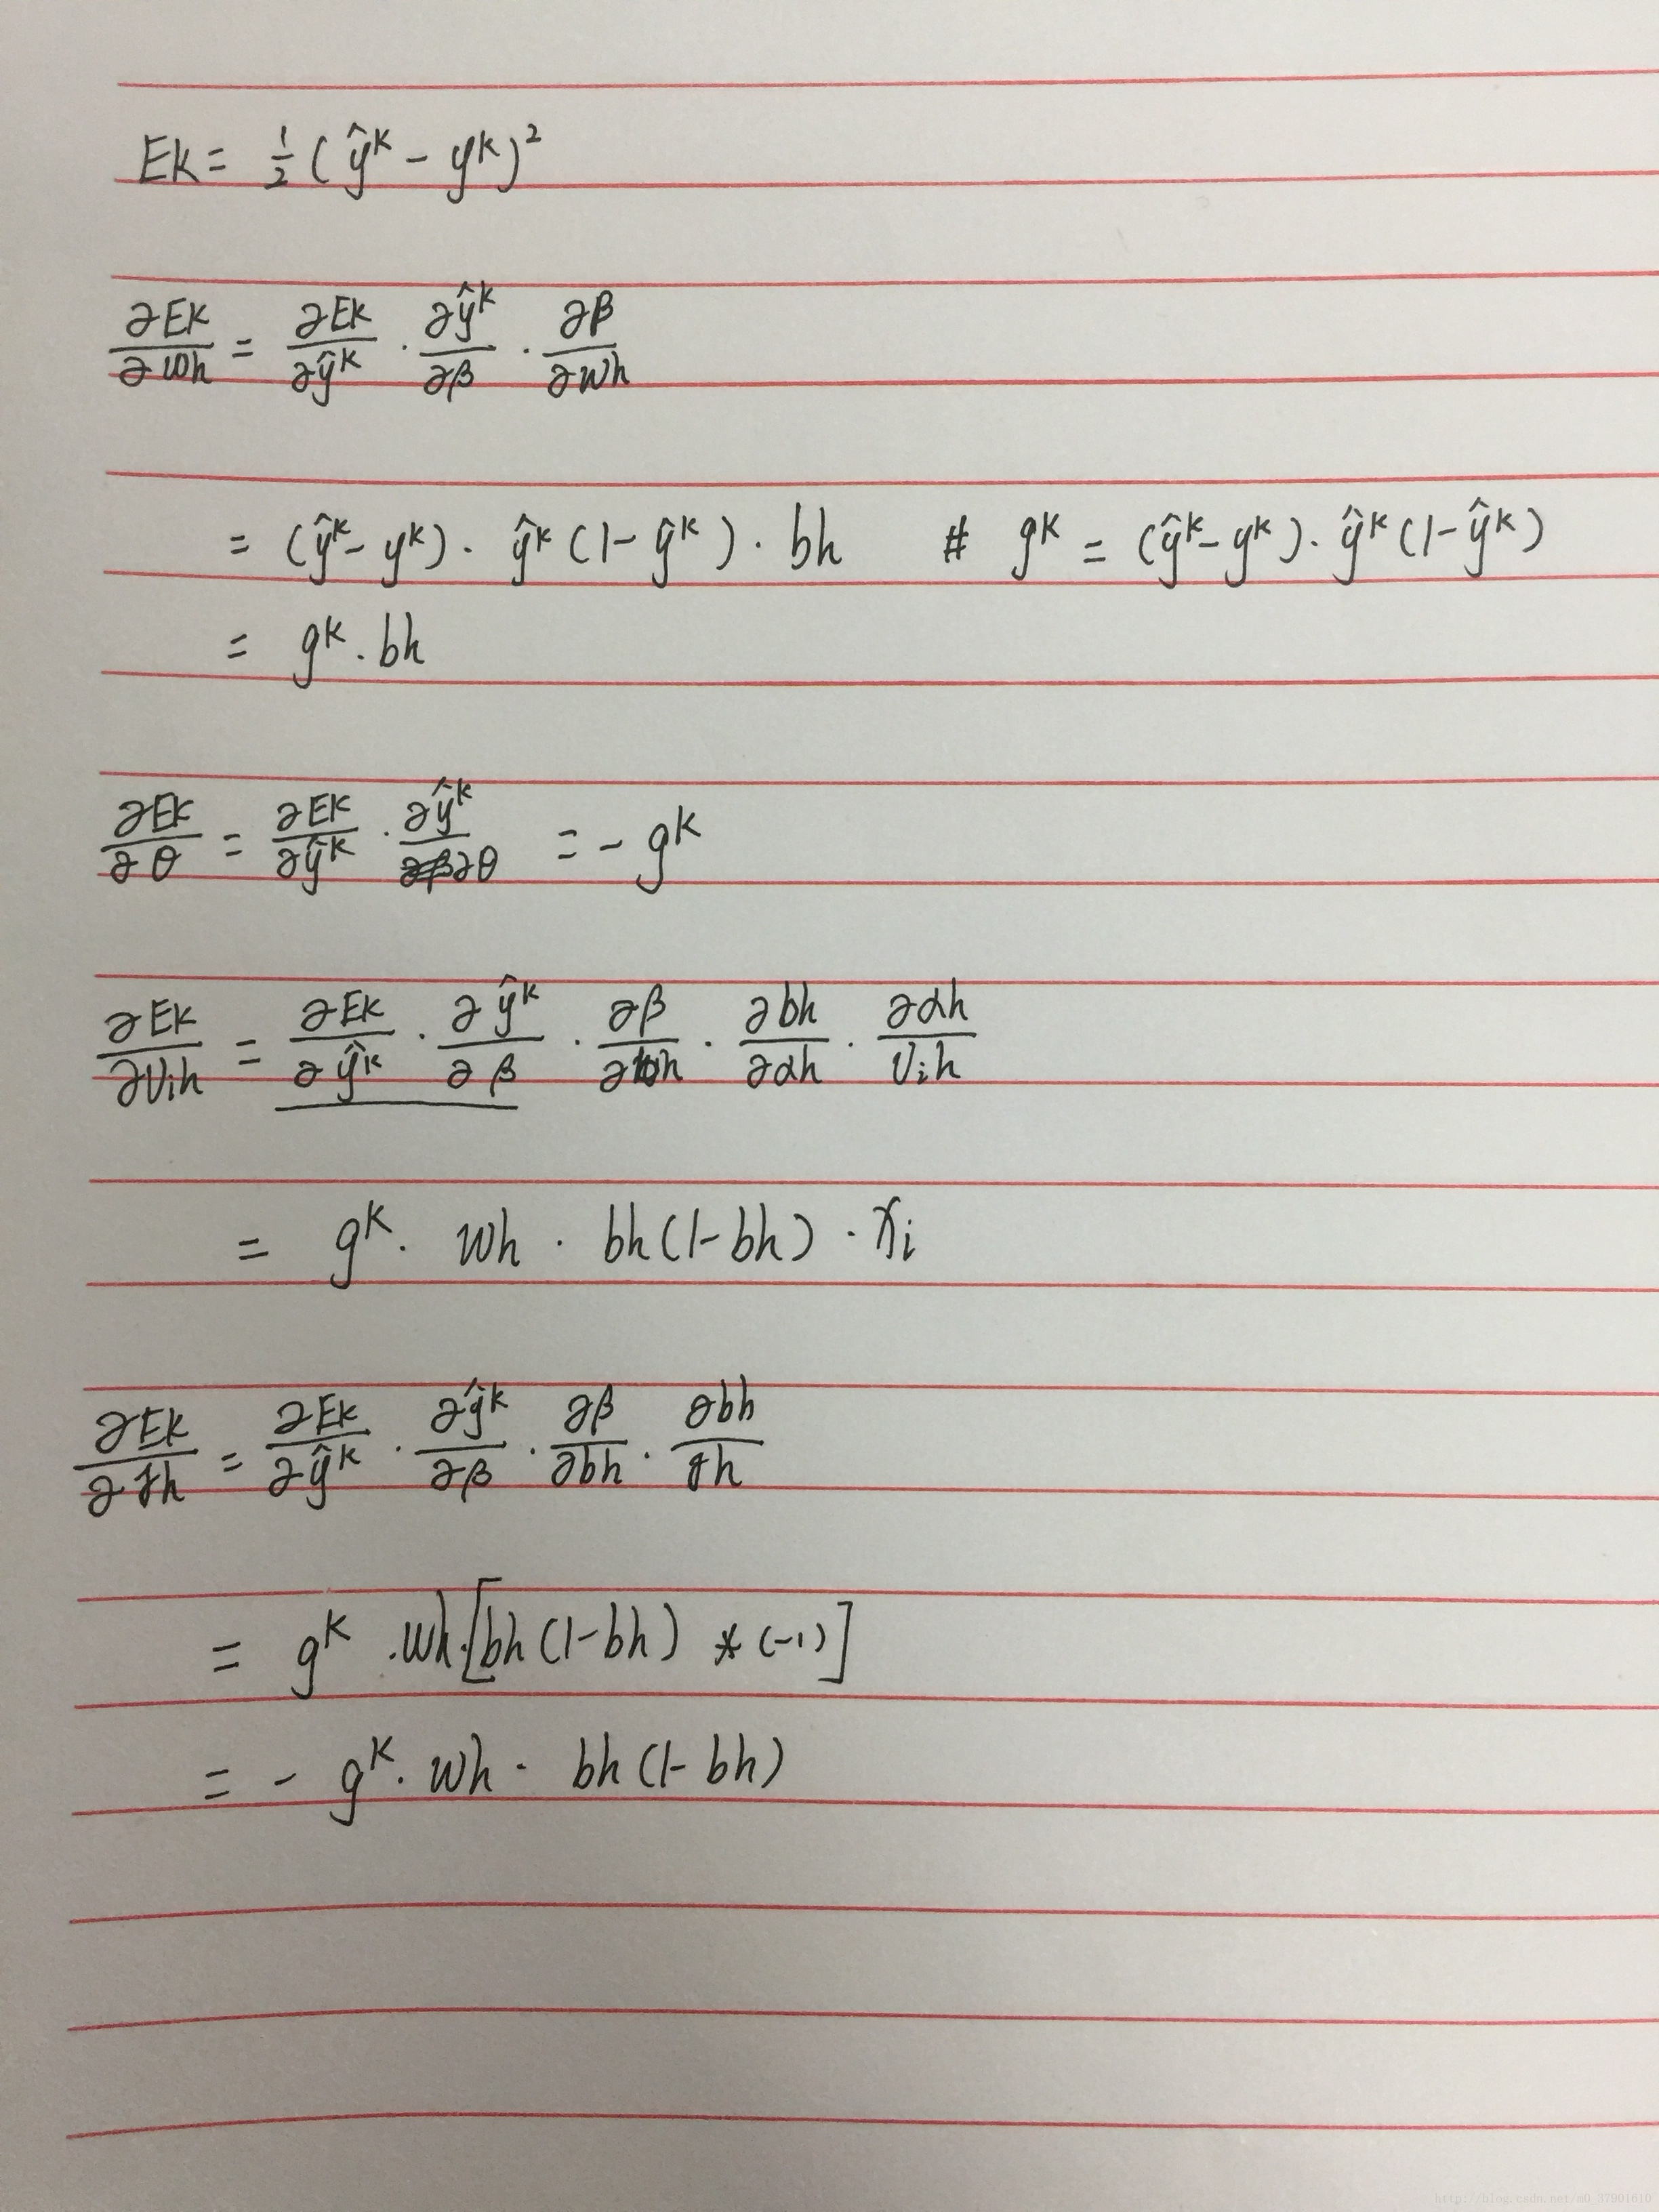 Ek = 1/2 (ŷ^k - y^k)^2
∂Ek/∂wh = ∂Ek/∂ŷ^k · ∂ŷ^k/∂β · ∂β/∂wh
= (ŷ^k - y^k) · ŷ^k (1 - ŷ^k) · bh # g^k = (ŷ^k - y^k) · ŷ^k (1 - ŷ^k)
= g^k · bh
∂Ek/∂θ = ∂Ek/∂ŷ^k · ∂ŷ^k/∂θ = - g^k
∂Ek/∂vih = ∂Ek/∂ŷ^k · ∂ŷ^k/∂β · ∂β/∂bh · ∂bh/∂αh · ∂αh/vih
= g^k · wh · bh (1 - bh) · xi
∂Ek/∂γh = ∂Ek/∂ŷ^k · ∂ŷ^k/∂β · ∂β/∂bh · ∂bh/γh
= g^k · wh · [bh (1 - bh) * (-1)]
= - g^k · wh · bh (1 - bh)
http://blog.csdn.net/m0_37901610